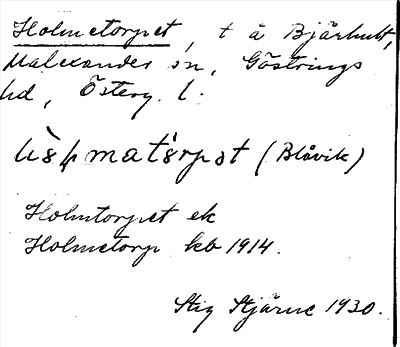 Holmetorpet, t å Bjärhult,
Malexander sn, Göstrings
hd, Österg. l.
(Blåvik)
Holmtorpet ek
Holmetorp kb 1914.
Stig Stjärne 1930.